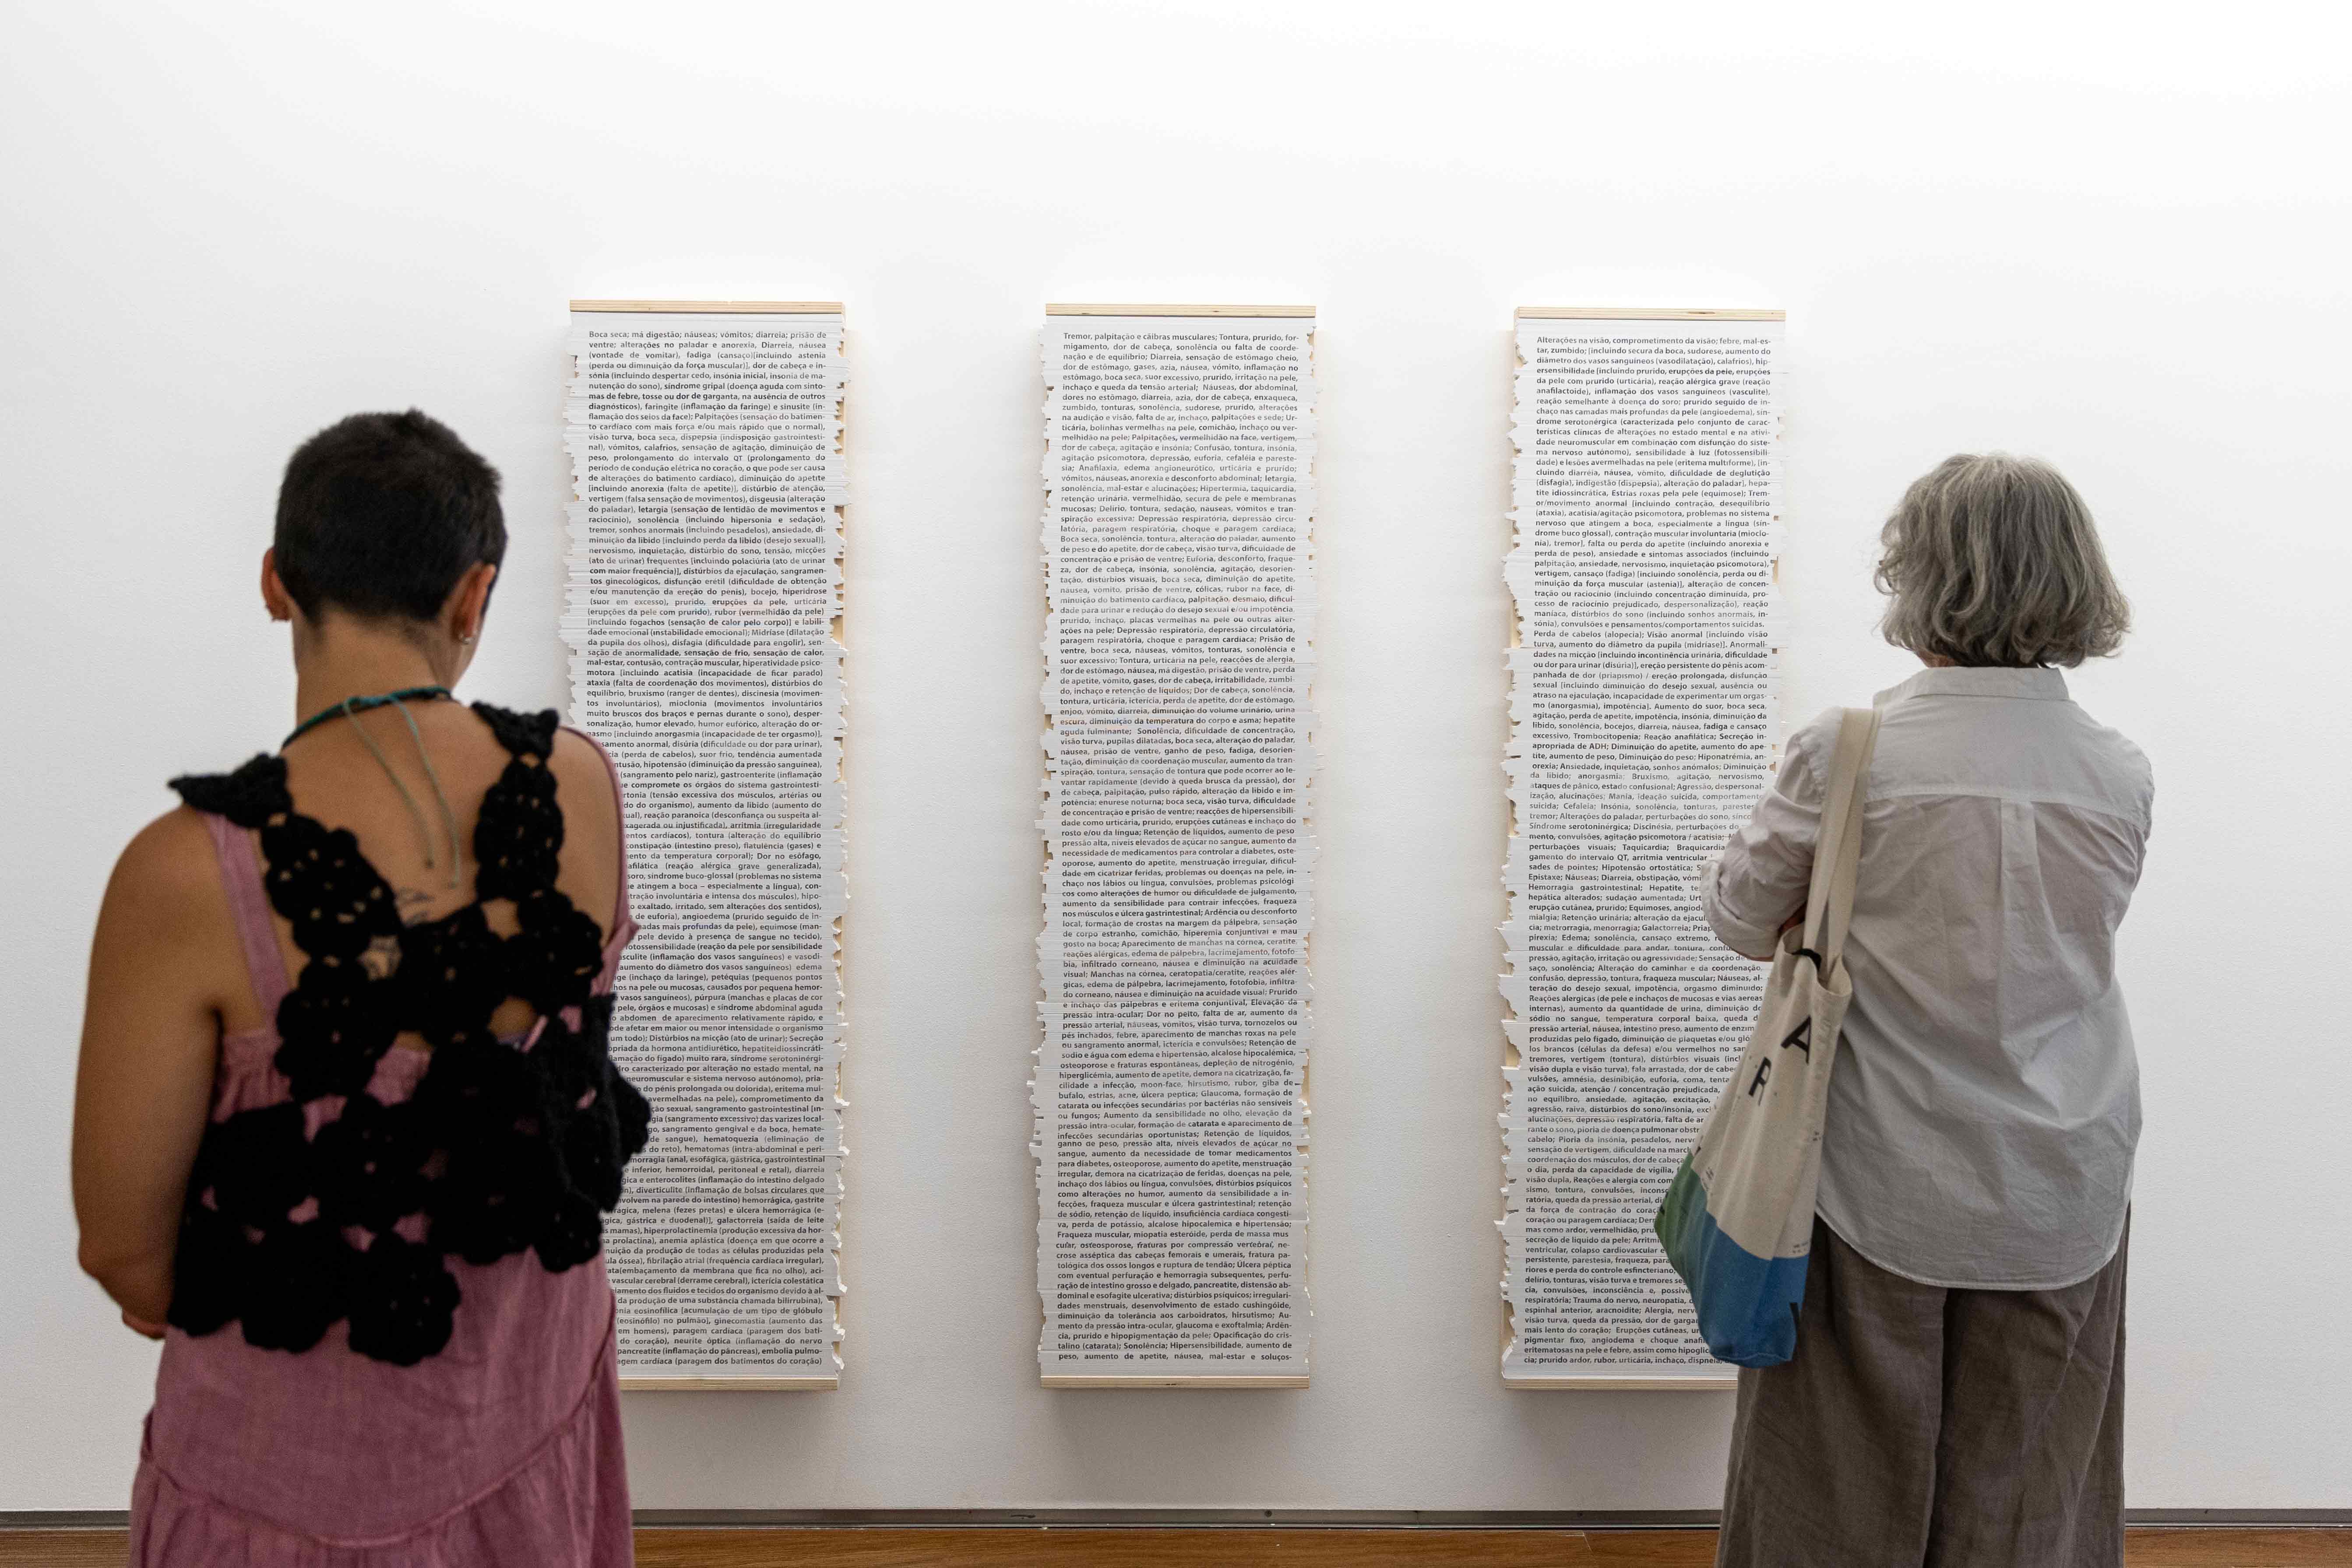 Boca seca; má digestão; náuseas; vómitos; diarreia; prisão de
ventre; alterações no paladar e anorexia, Diarreia, náusea
(vontade de vomitar), fadiga (cansaço)[incluindo astenia
(perda ou diminuição da força muscular)], dor de cabeça e in-
sónia (incluindo despertar cedo, insónia inicial, insonia de ma-
nutenção do sono), síndrome gripal (doença aguda com sinto-
mas de febre, tosse ou dor de garganta, na ausência de outros
diagnósticos), faringite (inflamação da faringe) e sinusite (in-
flamação dos seios da face); Palpitações (sensação do batimen-
to cardíaco com mais força e/ou mais rápido que o normal),
visão turva, boca seca, dispepsia (indisposição gastrointesti-
nal), vómitos, calafrios, sensação de agitação, diminuição de
peso, prolongamento do intervalo QT (prolongamento do
período de condução elétrica no coração, o que pode ser causa
de alterações do batimento cardíaco), diminuição do apetite
[incluindo anorexia (falta de apetite)], distúrbio de atenção,
vertigem (falsa sensação de movimentos), disgeusia (alteração
do paladar), letargia (sensação de lentidão de movimentos e
raciocínio), sonolência (incluindo hipersonia e sedação),
tremor, sonhos anormais (incluindo pesadelos), ansiedade, di-
minuição da libido [incluindo perda da libido (desejo sexual)],
nervosismo, inquietação, distúrbio do sono, tensão, micções
(ato de urinar) frequentes [incluindo polaciúria (ato de urinar
com maior frequência)], distúrbios da ejaculação, sangramen-
tos ginecológicos, disfunção eretil (dificuldade de obtenção
e/ou manutenção da ereção do penis), bocejo, hiperidrose
(suor em excesso), prurido, erupções da pele, urticária
(erupções da pele com prurido), rubor (vermelhidão da pele)
[incluindo fogachos (sensação de calor pelo corpo)] e labili-
dade emocional (instabilidade emocional); Midríase (dilatação
da pupila dos olhos), disfagia (dificuldade para engolir), sen-
sação de anormalidade, sensação de frio, sensação de calor,
mal-estar, contusão, contração muscular, hiperatividade psico-
motora [incluindo acatisia (incapacidade de ficar parado)
ataxia (falta de coordenação dos movimentos), distúrbios do
equilíbrio, bruxismo (ranger de dentes), discinesia (movimen-
tos involuntários), mioclonia (movimentos involuntários
muito bruscos dos braços e pernas durante o sono), desper-
sonalização, humor elevado, humor eufórico, alteração do or-
gasmo (incluindo anorgasmia (incapacidade de ter orgasmo)],
anormal, disúria (dificuldade ou dor para urinar),
(perda de cabelos), suor frio, tendência aumentada
hipotensão (diminuição da pressão sanguínea),
(sangramento pelo nariz), gastroenterite (inflamação
que compromete os órgãos do sistema gastrointesti-
(tensão excessiva dos músculos, artérias ou
do organismo), aumento da libido (aumento do
reação paranoica (desconfiança ou suspeita al-
ou injustificada), arritmia (irregularidade
cardíacos), tontura (alteração do equilíbrio
(intestino preso), flatulência (gases) e
da temperatura corporal); Dor no esôfago,
(reação alérgica grave generalizada),
soro, síndrome buco-glossal (problemas no sistema
atingem a boca – especialmente a língua), con-
involuntária e intensa dos músculos), hipo-
exaltado, irritado, sem alterações dos sentidos),
de euforia), angioedema (prurido seguido de in-
mais profundas da pele), equimose (man-
pele devido à presença de sangue no tecido),
(reação da pele por sensibilidade
(inflamação dos vasos sanguíneos) e vasodi-
do diâmetro dos vasos sanguíneos) edema
(inchaço da laringe), petéquias (pequenos pontos
na pele ou mucosas, causados por pequena hemor-
vasos sanguíneos), púrpura (manchas e placas de cor
pele, órgãos e mucosas) e síndrome abdominal aguda
abdomen de aparecimento relativamente rápido, e
afetar em maior ou menor intensidade o organismo
um todo); Distúrbios na micção (ato de urinar); Secreção
da hormona antidiurético,
do fígado) muito rara, síndrome serotoninérgi-
caracterizado por alteração no estado mental, na
neuromuscular e sistema nervoso autónomo), pria-
do pénis prolongada ou dolorida), eritema mul-
avermelhadas na pele), comprometimento da
sexual, sangramento gastrointestinal [in-
(sangramento excessivo) das varizes local-
sangramento gengival e da boca, hemate-
de sangue), hematoquezia (eliminação de
do reto), hematomas (intra-abdominal e peri-
(anal, esofágica, gástrica, gastrointestinal
inferior, hemorroidal, peritoneal e retal), diarreia
e enterocolites (inflamação do intestino delgado
diverticulite (inflamação de bolsas circulares que
na parede do intestino) hemorrágica, gastrite
melena (fezes pretas) e úlcera hemorrágica (e-
gástrica e duodenal)], galactorreia (saída de leite
mamas), hiperprolactinemia (produção excessiva da hor-
prolactina), anemia aplástica (doença em que ocorre a
da produção de todas as células produzidas pela
óssea), fibrilação atrial (frequência cardíaca irregular),
(embaçamento da membrana que fica no olho), aci-
vascular cerebral (derrame cerebral), icterícia colestática
dos fluidos e tecidos do organismo devido à al-
da produção de uma substância chamada bilirrubina),
eosinofílica [acumulação de um tipo de glóbulo
(eosinófilo) no pulmão], ginecomastia (aumento das
em homens), paragem cardíaca (paragem dos bati-
do coração), neurite óptica (inflamação do nervo
pancreatite (inflamação do pâncreas), embolia pulmo-
cardíaca (paragem dos batimentos do coração)
Tremor, palpitação e cãibras musculares; Tontura, prurido, for-
migamento, dor de cabeça, sonolência ou falta de coorde-
nação e de equilíbrio; Diarreia, sensação de estômago cheio,
dor de estômago, gases, azia, náusea, vómito, inflamação no
estômago, boca seca, suor excessivo, prurido, irritação na pele,
inchaço e queda da tensão arterial; Náuseas, dor abdominal,
dores no estômago, diarreia, azia, dor de cabeça, enxaqueca,
zumbido, tonturas, sonolência, sudorese, prurido, alterações
na audição e visão, falta de ar, inchaço, palpitações e sede; Ur-
ticária, bolinhas vermelhas na pele, comichão, inchaço ou ver-
melhidão na pele; Palpitações, vermelhidão na face, vertigem,
dor de cabeça, agitação e insónia; Confusão, tontura, insónia,
agitação psicomotora, depressão, euforia, cefaléia e pareste-
sia; Anafilaxia, edema angioneurótico, urticária e prurido;
vómitos, náuseas, anorexia e desconforto abdominal; letargia,
sonolência, mal-estar e alucinações; Hipertermia, taquicardia,
retenção urinária, vermelhidão, secura de pele e membranas
mucosas; Delírio, tontura, sedação, náuseas, vómitos e tran-
spiração excessiva; Depressão respiratória, depressão circu-
latória, paragem respiratória, choque e paragem cardíaca;
Boca seca, sonolência, tontura, alteração do paladar, aumento
de peso e do apetite, dor de cabeça, visão turva, dificuldade de
concentração e prisão de ventre; Euforia, desconforto, fraque-
za, dor de cabeça, insónia, sonolência, agitação, desorien-
tação, distúrbios visuais, boca seca, diminuição do apetite,
náusea, vómito, prisão de ventre, cólicas, rubor na face, di-
minuição do batimento cardíaco, palpitação, desmaio, dificul-
dade para urinar e redução do desejo sexual e/ou impotência,
prurido, inchaço, placas vermelhas na pele ou outras alter-
ações na pele; Depressão respiratória, depressão circulatória,
paragem respiratória, choque e paragem cardíaca; Prisão de
ventre, boca seca, náuseas, vómitos, tonturas, sonolência e
suor excessivo; Tontura, urticária na pele, reacções de alergia,
dor de estômago, náusea, má digestão, prisão de ventre, perda
de apetite, vómito, gases, dor de cabeça, irritabilidade, zumbi-
do, inchaço e retenção de líquidos; Dor de cabeça, sonolência,
tontura, urticária, icterícia, perda de apetite, dor de estômago,
enjoo, vómito, diarreia, diminuição do volume urinário, urina
escura, diminuição da temperatura do corpo e asma; hepatite
aguda fulminante; Sonolência, dificuldade de concentração,
visão turva, pupilas dilatadas, boca seca, alteração do paladar,
náusea, prisão de ventre, ganho de peso, fadiga, desorien-
tação, diminuição da coordenação muscular, aumento da tran-
spiração, tontura, sensação de tontura que pode ocorrer ao le-
vantar rapidamente (devido à queda brusca da pressão), dor
de cabeça, palpitação, pulso rápido, alteração da libido e im-
potência; enurese noturna; boca seca, visão turva, dificuldade
de concentração e prisão de ventre; reacções de hipersensibili-
dade como urticária, prurido, erupções cutâneas e inchaço do
rosto e/ou da língua; Retenção de líquidos, aumento de peso
pressão alta, níveis elevados de açúcar no sangue, aumento da
necessidade de medicamentos para controlar a diabetes, oste-
oporose, aumento do apetite, menstruação irregular, dificul-
dade em cicatrizar feridas, problemas ou doenças na pele, in-
chaço nos lábios ou língua, convulsões, problemas psicológi-
cos como alterações de humor ou dificuldade de julgamento,
aumento da sensibilidade para contrair infecções, fraqueza
nos músculos e úlcera gastrintestinal; Ardência ou desconforto
local, formação de crostas na margem da pálpebra, sensação
de corpo estranho, comichão, hiperemia conjuntival e mau
gosto na boca; Aparecimento de manchas na córnea, ceratite,
reações alérgicas, edema de pálpebra, lacrimejamento, fotofo-
bia, infiltrado corneano, náusea e diminuição na acuidade
visual; Manchas na córnea, ceratopatia/ceratite, reações alér-
gicas, edema de pálpebra, lacrimejamento, fotofobia, infiltra-
do corneano, náusea e diminuição na acuidade visual; Prurido
e inchaço das pálpebras e eritema conjuntival, Elevação da
pressão intra-ocular; Dor no peito, falta de ar, aumento da
pressão arterial, náuseas, vómitos, visão turva, tornozelos ou
pés inchados, febre, aparecimento de manchas roxas na pele
ou sangramento anormal, icterícia e convulsões; Retenção de
sodio e água com edema e hipertensão, alcalose hipocalémica,
osteoporose e fraturas espontâneas, depleção de nitrogénio,
hiperglicémia, aumento de apetite, demora na cicatrização, fa-
cilidade a infecção, moon-face, hirsutismo, rubor, giba de
bufalo, estrias, acne, úlcera peptica; Glaucoma, formação de
catarata ou infecções secundárias por bactérias não sensíveis
ou fungos; Aumento da sensibilidade no olho, elevação da
pressão intra-ocular, formação de catarata e aparecimento de
infecções secundárias oportunistas; Retenção de líquidos,
ganho de peso, pressão alta, níveis elevados de açúcar no
sangue, aumento da necessidade de tomar medicamentos
para diabetes, osteoporose, aumento do apetite, menstruação
irregular, demora na cicatrização de feridas, doenças na pele,
inchaço dos lábios ou língua, convulsões, distúrbios psíquicos
como alterações no humor, aumento da sensibilidade a in-
fecções, fraqueza muscular e úlcera gastrintestinal; retenção
de sódio, retenção de líquido, insuficiência cardíaca congesti-
va, perda de potássio, alcalose hipocalemica e hipertensão;
Fraqueza muscular, miopatia esteróide, perda de massa mus
cular, osteosporose, fraturas por compressão vertebral, ne-
crose asséptica das cabeças femorais e umerais, fratura pa-
tológica dos ossos longos e ruptura de tendão; Úlcera péptica
com eventual perfuração e hemorragia subsequentes, perfu-
ração de intestino grosso e delgado, pancreatite, distensão ab-
dominal e esofagite ulcerativa; distúrbios psíquicos; irregulari-
dades menstruais, desenvolvimento de estado cushingóide,
diminuição da tolerância aos carboidratos, hirsutismo; Au-
mento da pressão intra-ocular, glaucoma e exoftalmia; Ardên-
cia, prurido e hipopigmentação da pele; Opacificação do cris-
talino (catarata); Sonolência; Hipersensibilidade, aumento de
peso, aumento de apetite, náusea, mal-estar e soluços-
Alterações na visão, comprometimento da visão; febre, mal-es-
tar, zumbido; [incluindo secura da boca, sudorese, aumento do
diâmetro dos vasos sanguíneos (vasodilatação), calafrios), hip-
ersensibilidade [incluindo prurido, erupções da pele, erupções
da pele com prurido (urticária), reação alérgica grave (reação
anafilactoide), inflamação dos vasos sanguíneos (vasculite),
reação semelhante à doença do soro; prurido seguido de in-
chaço nas camadas mais profundas da pele (angioedema), sín-
drome serotonérgica (caracterizada pelo conjunto de carac-
terísticas clínicas de alterações no estado mental e na ativi-
dade neuromuscular em combinação com disfunção do siste-
ma nervoso autónomo), sensibilidade à luz (fotossensibili-
dade) e lesões avermelhadas na pele (eritema multiforme), [in-
cluindo diarréia, náusea, vómito, dificuldade de deglutição
(disfagia), indigestão (dispepsia), alteração do paladar], hepa-
tite idiossincrática, Estrias roxas pela pele (equimose); Trem-
or/movimento anormal [incluindo contração, desequilíbrio
(ataxia), acatisia/agitação psicomotora, problemas no sistema
nervoso que atingem a boca, especialmente a língua (sín-
drome buco glossal), contração muscular involuntária (mioclo-
nia), tremor], falta ou perda do apetite (incluindo anorexia e
perda de peso), ansiedade e sintomas associados (incluindo
palpitação, ansiedade, nervosismo, inquietação psicomotora),
vertigem, cansaço (fadiga) [incluindo sonolência, perda ou di-
minuição da força muscular (astenia)], alteração de concen-
tração ou raciocínio (incluindo concentração diminuída, pro-
cesso de raciocínio prejudicado, despersonalização), reação
maníaca, distúrbios do sono (incluindo sonhos anormais, in-
sónia), convulsões e pensamentos/comportamentos suicidas.
Perda de cabelos (alopecia); Visão anormal [incluindo visão
turva, aumento do diâmetro da pupila (midríase)]. Anormali-
dades na micção [incluindo incontinência urinária, dificuldade
ou dor para urinar (disúria)], ereção persistente do pénis acom-
panhada de dor (priapismo) / ereção prolongada, disfunção
sexual [incluindo diminuição do desejo sexual, ausência ou
atraso na ejaculação, incapacidade de experimentar um orgas-
mo (anorgasmia), impotência]. Aumento do suor, boca seca,
agitação, perda de apetite, impotência, insónia, diminuição da
libido, sonolência, bocejos, diarreia, náusea, fadiga e cansaço
excessivo, Trombocitopenia; Reação anafilática; Secreção in-
apropriada de ADH; Diminuição do apetite, aumento do ape-
tite, aumento de peso, Diminuição do peso; Hiponatrémia, an-
orexia; Ansiedade, inquietação, sonhos anómalos; Diminuição
da libido; anorgasmia; Bruxismo, agitação, nervosismo,
ataques de pânico, estado confusional; Agressão, despersonal-
ização, alucinações; Mania, ideação suicida, comportamento
suicida; Cefaleia; Insónia, sonolência, tonturas,
tremor; Alterações do paladar, perturbações do sono,
Síndrome serotoninérgica; Discinésia, perturbações do
mento, convulsões, agitação psicomotora / acatisia;
perturbações visuais; Taquicardia;
gamento do intervalo QT, arritmia ventricular
sades de pointes; Hipotensão ortostática;
Epistaxe; Náuseas; Diarreia, obstipação,
Hemorragia gastrointestinal; Hepatite,
hepática alterados; sudação aumentada;
erupção cutânea, prurido; Equimoses,
mialgia; Retenção urinária; alteração da
cia; metrorragia, menorragia; Galactorreia;
pirexia; Edema; sonolência, cansaço extremo,
muscular e dificuldade para andar, tontura,
pressão, agitação, irritação ou agressividade; Sensação de
saço, sonolência; Alteração do caminhar e da coordenação,
confusão, depressão, tontura, fraqueza muscular; Náuseas, al-
teração do desejo sexual, impotência, orgasmo diminuído;
Reações alergicas (de pele e inchaços de mucosas e vias aereas
internas), aumento da quantidade de urina, diminuição do
sódio no sangue, temperatura corporal baixa, queda
pressão arterial, náusea, intestino preso, aumento de
produzidas pelo fígado, diminuição de plaquetas e/ou
los brancos (células da defesa) e/ou vermelhos no
tremores, vertigem (tontura), distúrbios visuais
visão dupla e visão turva), fala arrastada, dor de
vulsões, amnésia, desinibição, euforia, coma,
ação suicida, atenção / concentração prejudicada,
no equilíbrio, ansiedade, agitação, excitação,
agressão, raiva, distúrbios do sono/insónia,
alucinações, depressão respiratória, falta de
rante o sono, pioria de doença pulmonar
cabelo; Pioria da insónia, pesadelos,
sensação de vertigem, dificuldade na
coordenação dos músculos, dor de
o dia, perda da capacidade de vigília,
visão dupla, Reações e alergia com
sismo, tontura, convulsões,
ratória, queda da pressão arterial,
da força de contração do
coração ou paragem cardíaca;
mas como ardor, vermelhidão,
secreção de líquido da pele;
ventricular, colapso cardiovascular e
persistente, parestesia, fraqueza,
riores e perda do controle esfincteriano;
delírio, tonturas, visão turva e tremores
cia, convulsões, inconsciência e,
respiratória; Trauma do nervo, neuropatia,
espinhal anterior, aracnoidite; Alergia,
visão turva, queda da pressão, dor de
mais lento do coração; Erupções cutâneas,
pigmentar fixo, angiedema e choque
eritematosas na pele e febre, assim como
cia; prurido ardor, rubor, urticária, inchaço,
A
R